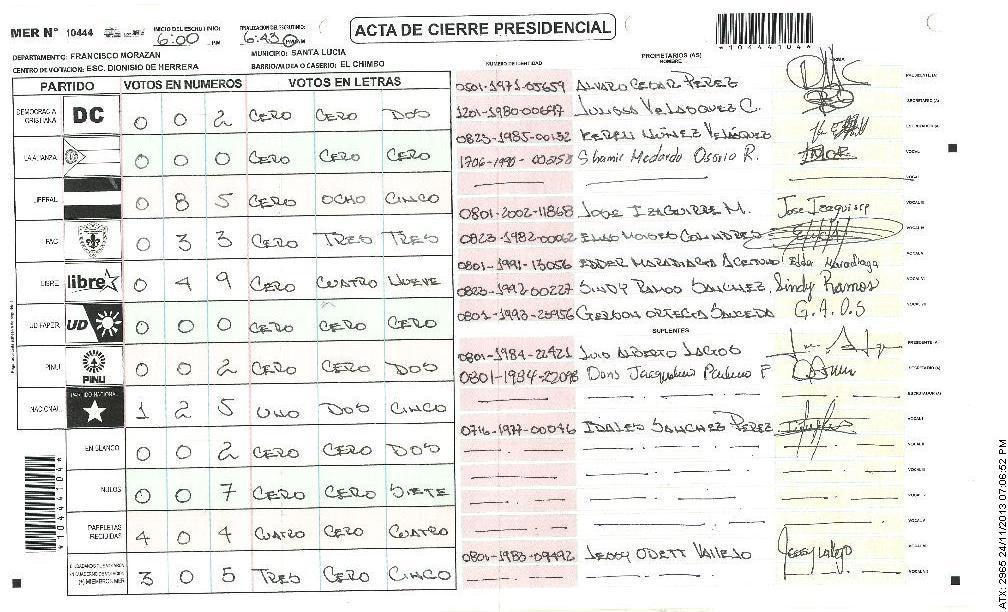 MER N° 10444 INICIO DEL ESCRUTINIO: 6:00 PM FINALIZACION DEL ESCRUTINIO: 6:43 PM
ACTA DE CIERRE PRESIDENCIAL
*10444104*
DEPARTAMENTO: FRANCISCO MORAZAN MUNICIPIO: SANTA LUCIA
CENTRO DE VOTACION: ESC. DIONISIO DE HERRERA BARRIO/ALDEA O CASERIO: EL CHIMBO
PARTIDO VOTOS EN NUMEROS VOTOS EN LETRAS
DEMOCRACIA CRISTIANA DC 0 0 2 CERO CERO DOS
LA ALIANZA 0 0 0 CERO CERO CERO
LIBERAL 0 8 5 CERO OCHO CINCO
PAC 0 3 3 CERO TRES TRES
LIBRE libre 0 4 9 CERO CUATRO NUEVE
UD FAPER UD 0 0 0 CERO CERO CERO
PINU PINU 0 0 2 CERO CERO DOS
NACIONAL PARTIDO NACIONAL 1 2 5 UNO DOS CINCO
EN BLANCO 0 0 2 CERO CERO DOS
NULOS 0 0 7 CERO CERO SIETE
PAPELETAS RECIBIDAS 4 0 4 CUATRO CERO CUATRO
(+) MIEMBRON MER 3 0 5 TRES CERO CINCO
*10444104*
NUMERO DE IDENTIDAD PROPIETARIOS (AS) NOMBRE FIRMA
0501-1971-05659 ALVARO CESAR PEREZ PRESIDENTE (A)
1201-1980-00647 JULISSA VELASQUEZ C. SECRETARIO (A)
0823-1985-00132 KERELI NUNEZ VELASQUEZ ESCRUTADOR (A)
Shamir Medardo Osorio R. VOCAL I
VOCAL II
0801-2002-11868 JOSE IZAGUIRRE M. Jose Izaguirre VOCAL III
0823-1982-00062 VOCAL IV
0801-1991-13056 Edder Maradiaga VOCAL V
0823-1992-00227 SINDY RAMOS SANCHEZ. Sindy Ramos VOCAL VI
0801-1993-23956 GERSON ORTEGA SAUCEDA G.A.O.S VOCAL VII
SUPLENTES
0801-1984-22421 LUIS ALBERTO LAGOS PRESIDENTE (A)
0801-1984-22098 SECRETARIO (A)
ESCRUTADOR (A)
0716-1977-00046 IDALES SANCHEZ PEREZ VOCAL I
VOCAL II
VOCAL III
VOCAL IV
VOCAL V
0801-1983-09492 JESSY ODETT VALLEJO Jessy Vallejo VOCAL VI
VOCAL VII
ATX: 2965 24/11/2013 07:06:52 PM